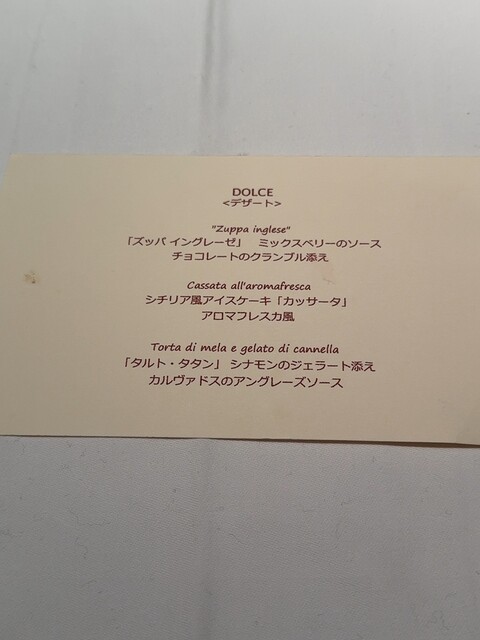 DOLCE
<デザート>
"Zuppa inglese"
「ズッパ イングレーゼ」　ミックスベリーのソース
チョコレートのクランブル添え
Cassata all'aromafresca
シチリア風アイスケーキ「カッサータ」
アロマフレスカ風
Torta di mela e gelato di cannella
「タルト・タタン」 シナモンのジェラート添え
カルヴァドスのアングレーズソース